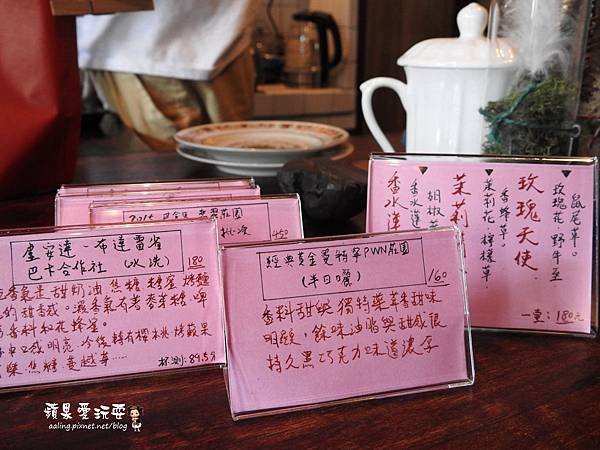 盧安達-布達雷省
巴卡合作社(水洗) 180
香氣是甜奶油 焦糖 蜂蜜 烤麵
的甜香感。濕香氣有著麥芽糖,啤
香料和花蜂蜜。
口感明亮,冷後轉有櫻桃 烤蘋果
焦糖 蔓越莓……
杯測:89.5分
莊園
450
經典黃金曼特寧PWN莊園
(半日曬)
160
香料甜與獨特藥草香甜味
明顯,餘味油脂與甜感很
持久黑巧克力味道濃厚
鼠尾草。
玫瑰花、野牛至
玫瑰天使
香蜂草。
茉莉花、檸檬草
茉莉
胡椒
香水蓮
香水蓮
一壺:180元
蘋果愛玩耍
aaling.pixnet.net/blog